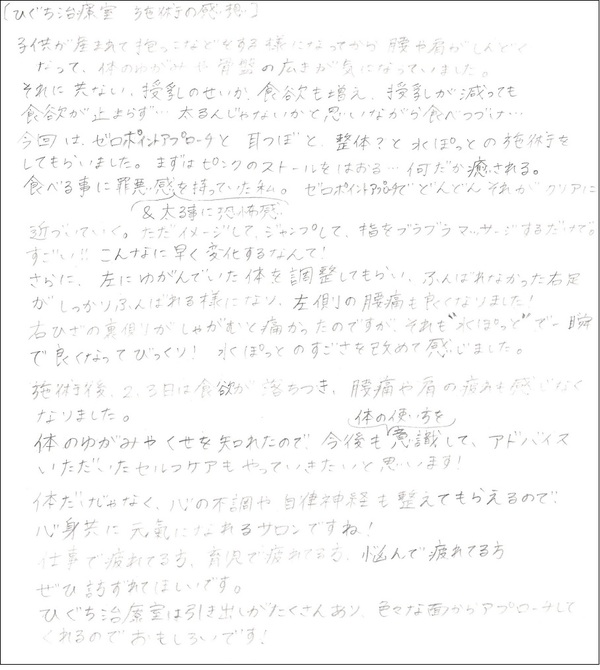 [ひぐち治療室 施術の感想]
子供が産まれて抱っこなどをする様になってから腰や肩がしんどく
なって、体のゆがみや骨盤の広さが気になっていました。
それに夫ない、授乳のせいか、食欲も増え、授乳が減っても
食欲が止まらず… 太るんじゃないかと思いながら食べつづけ…
今回は、ゼロポイントアプローチと 耳つぼと、整体?と 水ぽっとの施術を
してもらいました。まずはピンクのストールをはおる…何だか癒される。
食べる事に罪悪感を持っていた私。ゼロポイントアプローチでどんどんそれがクリアに
&太る事に恐怖感
近づいていく。ただイメージして、ジャンプして、指をブラブラマッサージするだけで。
すごい!! こんなに早く変化するなんて!
さらに、左にゆがんでいた体を調整してもらい、ふんばれなかった右足
がしっかりふんばれる様になり、左側の腰痛も良くなりました!
右ひざの裏側りがしゃがむと痛かったのですが、それも"水ぽっと"で一瞬
で良くなってびっくり! 水ぽっとのすごさを改めて感じました。
施術後、2、3日は食欲が落ちつき、腰痛や肩の痛みも感じなく
なりました。
体の使い方を
体のゆがみやくせを知れたので、今後も意識して、アドバイス
いただいたセルフケアもやっていきたいと思います!
体だけじゃなく、心の不調や自律神経も整えてもらえるので
心身共に元氣になれるサロンですね!
仕事で疲れてる方、育児で疲れてる方、悩んで疲れてる方
ぜひ訪ずれてほしいです。
ひぐち治療室は引き出しがたくさんあり、色々な面からアプローチして
くれるのでおもしろいです!